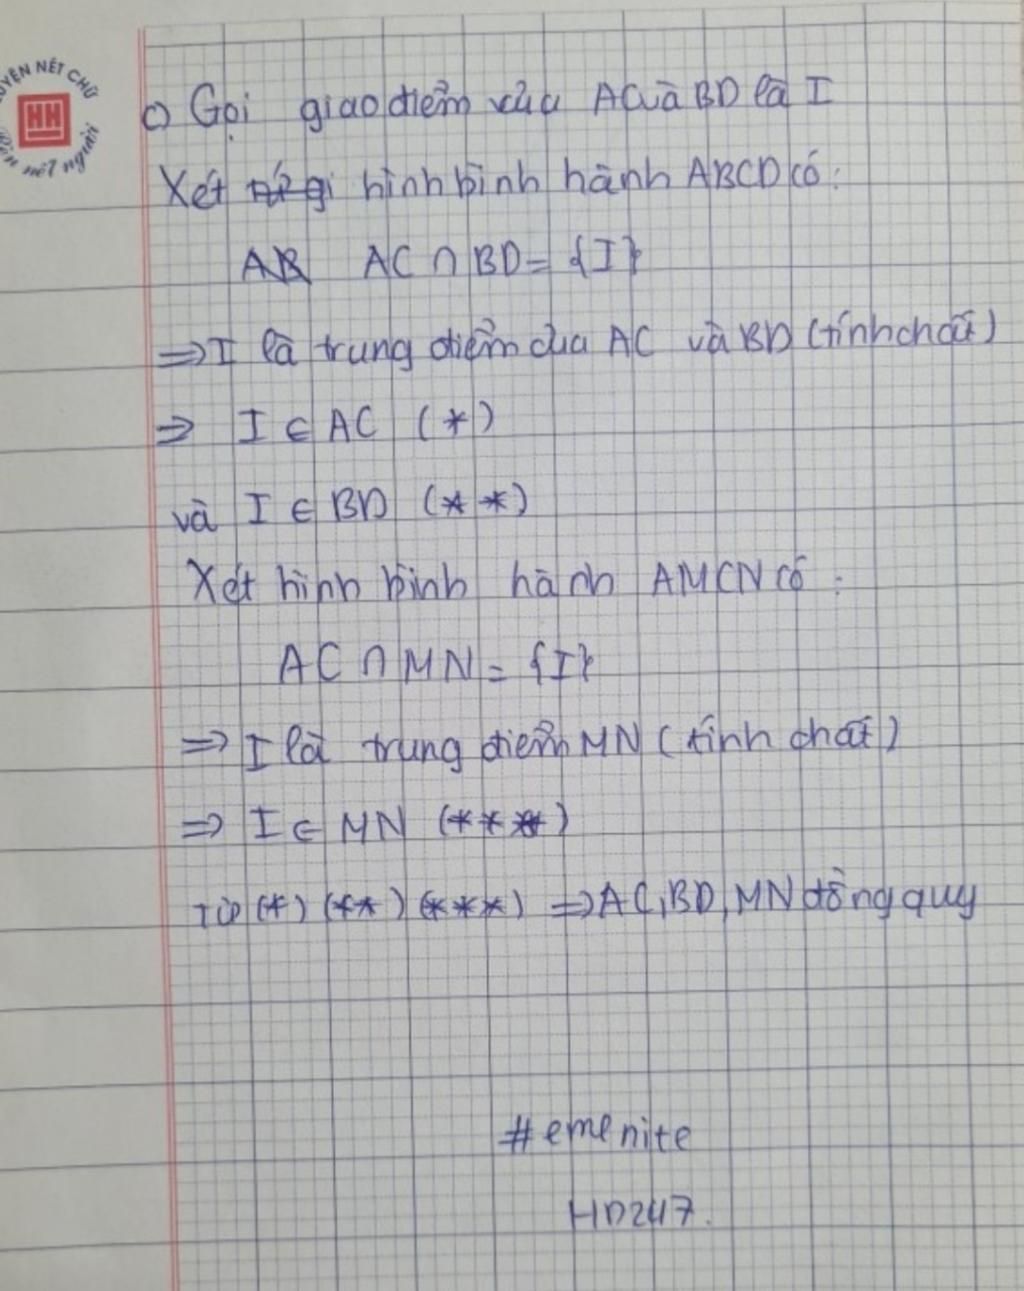 UYỆN NÉT CHỮ
HH
Rèn nết người
c) Gọi giao điểm của AC và BD là I
Xét hình bình hành ABCD có:
AC ∩ BD = {I}
⇒ I là trung điểm của AC và BD (tính chất)
⇒ I ∈ AC (*)
và I ∈ BD (**)
Xét hình bình hành AMCN có:
AC ∩ MN = {I}
⇒ I là trung điểm MN (tính chất)
⇒ I ∈ MN (***)
Từ (*) (**) (***) ⇒ AC, BD, MN đồng quy
#emenite
HD247.